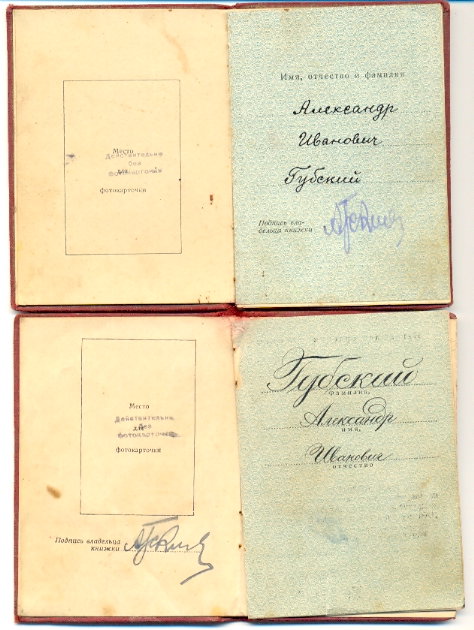 Место
для
фотокарточки
Действительно
без
фотокарточки
Имя, отчество и фамилия
Александр
Иванович
Губский
Подпись вла-
дельца книжки
Место
для
фотокарточки
Действительно
без
фотокарточки
Подпись владельца
книжки
Губский
фамилия,
Александр
имя,
Иванович
отчество